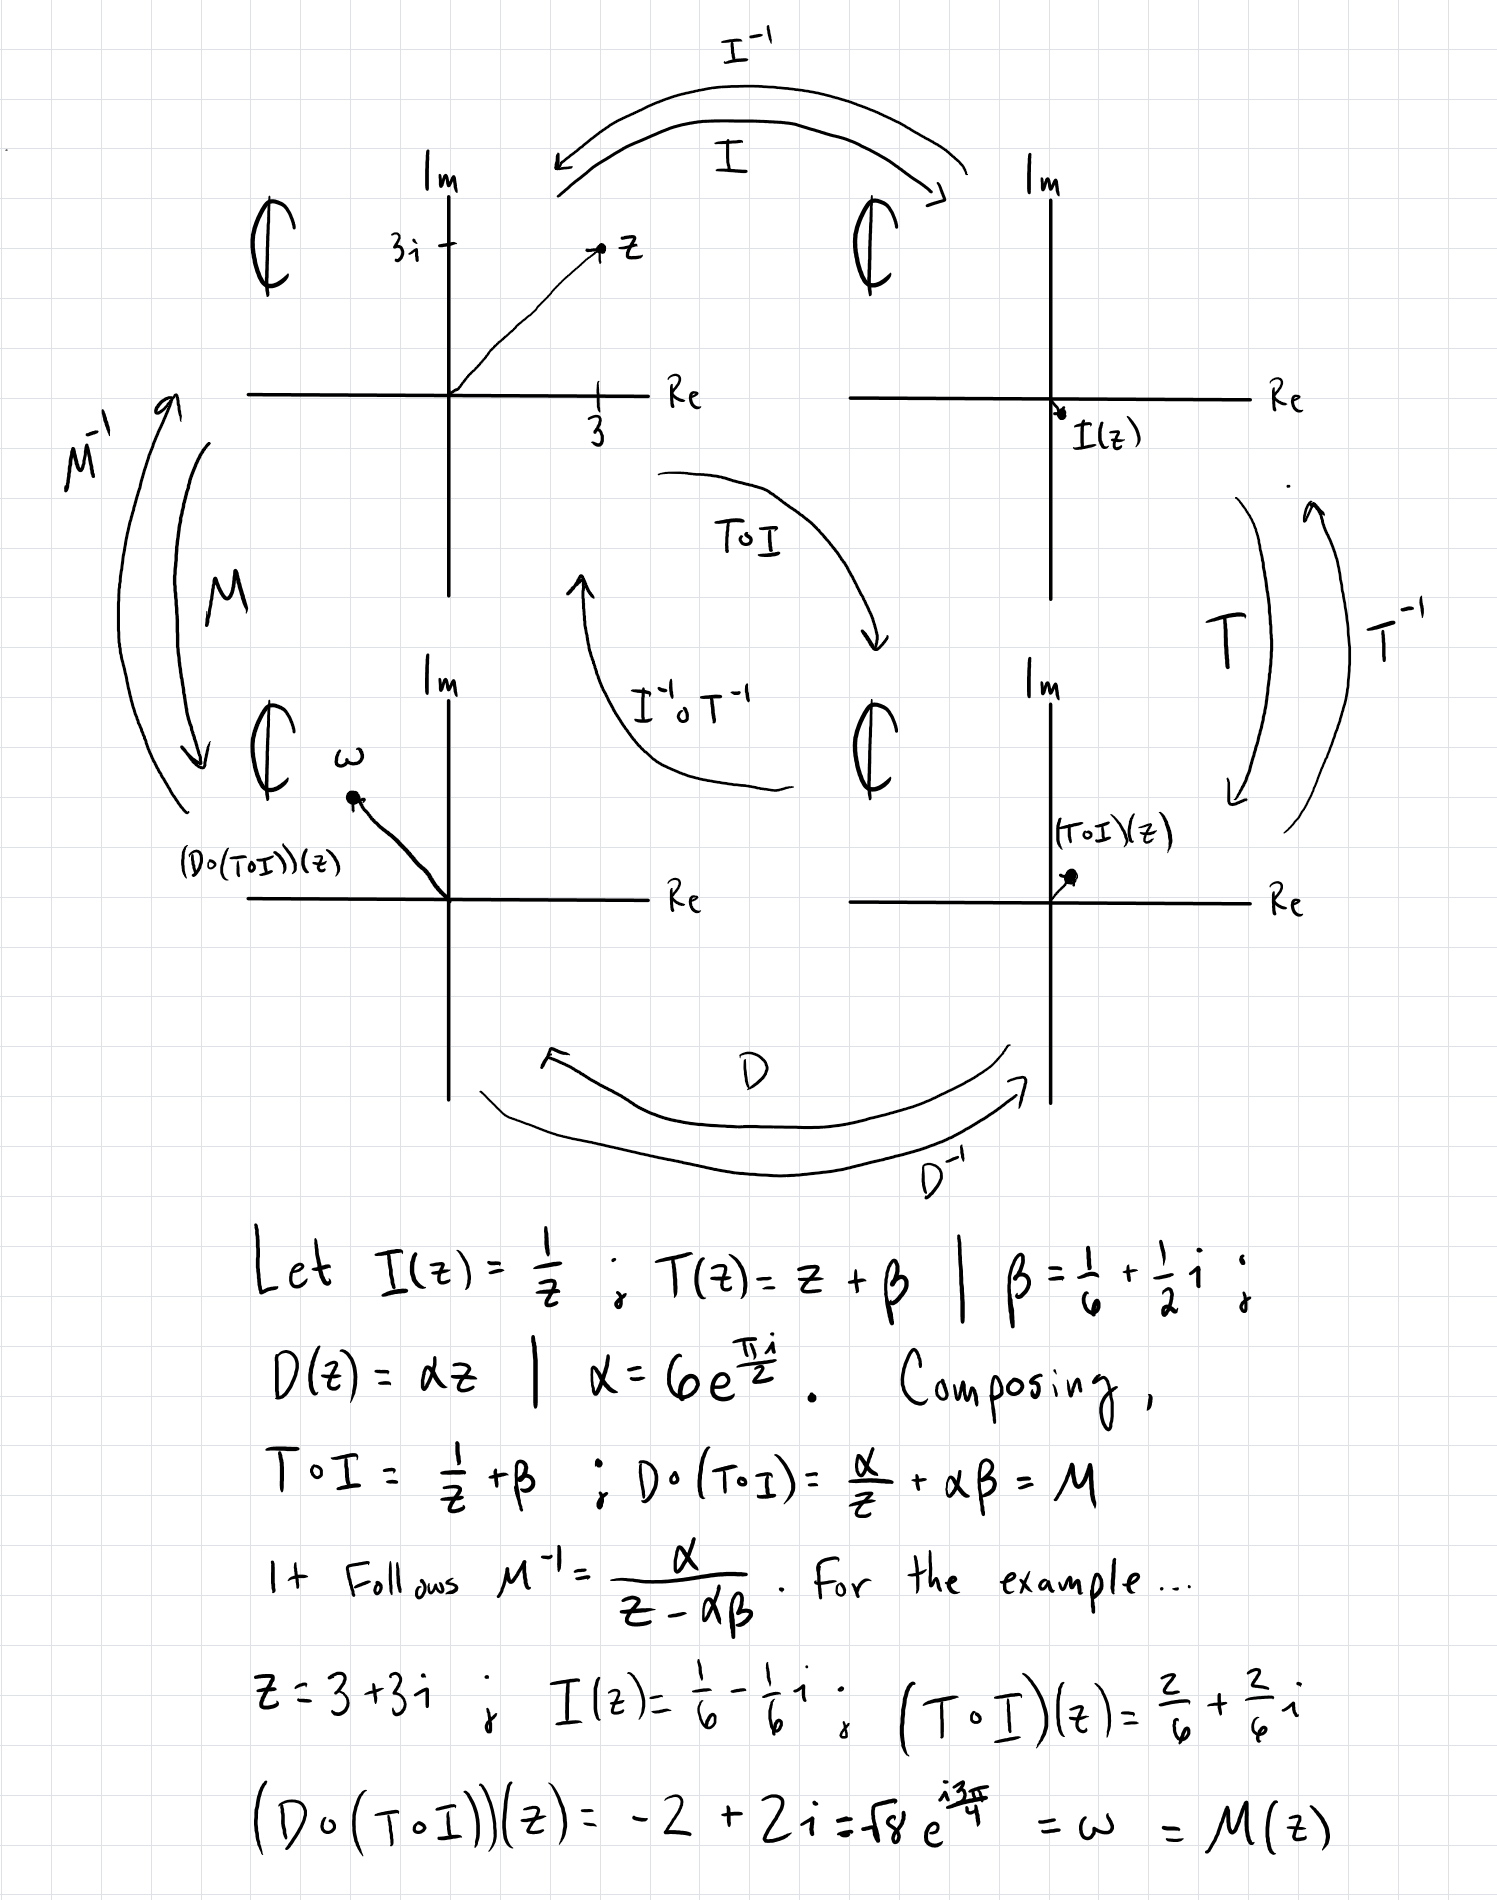 I⁻¹
I
Im
Im
ℂ
3i
z
ℂ
Re
Re
3
I(z)
M⁻¹
T∘I
M
T
T⁻¹
Im
Im
I⁻¹∘T⁻¹
ℂ
ω
ℂ
(T∘I)(z)
(D∘(T∘I))(z)
Re
Re
D
D⁻¹
Let I(z) = 1/z ; T(z) = z + β | β = 1/6 + 1/2 i ;
D(z) = αz | α = 6e^(πi/2) . Composing,
T∘I = 1/z + β ; D∘(T∘I) = α/z + αβ = M
It Follows M⁻¹ = α/(z - αβ) . For the example...
z = 3 + 3i ; I(z) = 1/6 - 1/6 i ; (T∘I)(z) = 2/6 + 2/6 i
(D∘(T∘I))(z) = -2 + 2i = √8 e^(i3π/4) = ω = M(z)